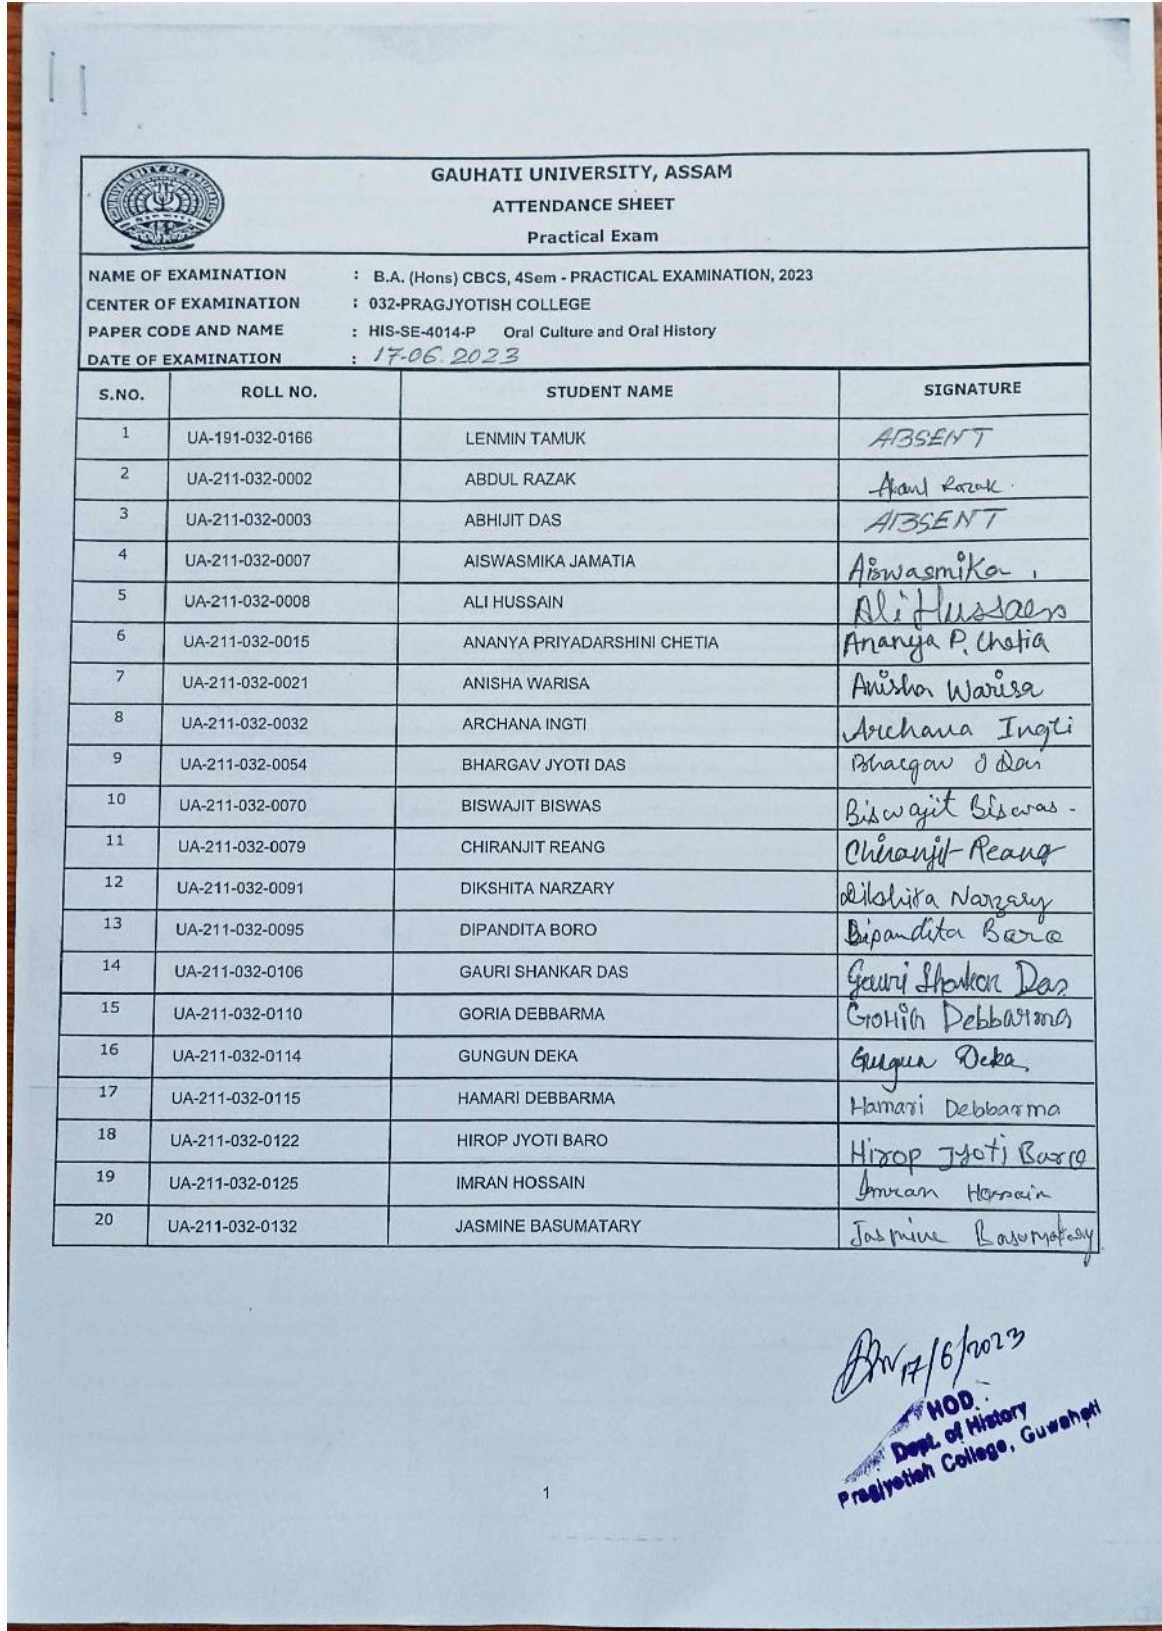 GAUHATI UNIVERSITY, ASSAM
ATTENDANCE SHEET
Practical Exam
NAME OF EXAMINATION : B.A. (Hons) CBCS, 4Sem - PRACTICAL EXAMINATION, 2023
CENTER OF EXAMINATION : 032-PRAGJYOTISH COLLEGE
PAPER CODE AND NAME : HIS-SE-4014-P Oral Culture and Oral History
DATE OF EXAMINATION : 17-06.2023
S.NO. ROLL NO. STUDENT NAME SIGNATURE
1 UA-191-032-0166 LENMIN TAMUK ABSENT
2 UA-211-032-0002 ABDUL RAZAK Razak.
3 UA-211-032-0003 ABHIJIT DAS ABSENT
4 UA-211-032-0007 AISWASMIKA JAMATIA Aiswasmika
5 UA-211-032-0008 ALI HUSSAIN Ali Hussain
6 UA-211-032-0015 ANANYA PRIYADARSHINI CHETIA Ananya P. Chetia
7 UA-211-032-0021 ANISHA WARISA Anisha Warisa
8 UA-211-032-0032 ARCHANA INGTI Archana Ingti
9 UA-211-032-0054 BHARGAV JYOTI DAS Bhargav J Das
10 UA-211-032-0070 BISWAJIT BISWAS Biswajit Biswas.
11 UA-211-032-0079 CHIRANJIT REANG Chiranjit Reang
12 UA-211-032-0091 DIKSHITA NARZARY Dikshita Narzary
13 UA-211-032-0095 DIPANDITA BORO Dipandita Boro
14 UA-211-032-0106 GAURI SHANKAR DAS Gauri Shankar Das
15 UA-211-032-0110 GORIA DEBBARMA Goria Debbarma
16 UA-211-032-0114 GUNGUN DEKA Gungun Deka
17 UA-211-032-0115 HAMARI DEBBARMA Hamari Debbarma
18 UA-211-032-0122 HIROP JYOTI BARO Hirop Jyoti Baro
19 UA-211-032-0125 IMRAN HOSSAIN Imran Hossain
20 UA-211-032-0132 JASMINE BASUMATARY Jasmine Basumatary
17/6/2023
HOD
Dept. of History
Pragjyotish College, Guwahati
1